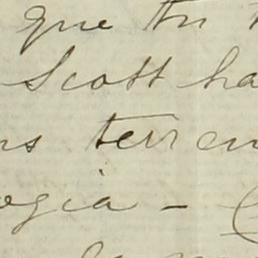 que tu
Scott ha
ns terren
ogia -